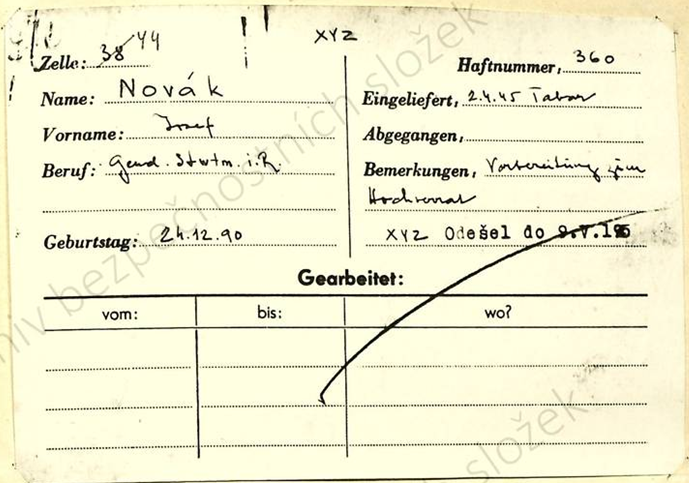 XYZ
Zelle: 38 44
Haftnummer, 360
Name: Novák
Eingeliefert, 2.4.45 Tabor
Vorname: Josef
Abgegangen,
Beruf: Gend. Stwtm. i. R.
Bemerkungen, Vorbereitung zum
Hochverrat
Geburtstag: 24.12.90
XYZ Odešel do 9.V.1945
Gearbeitet:
vom: bis: wo?
archiv bezpečnostních složek
složek